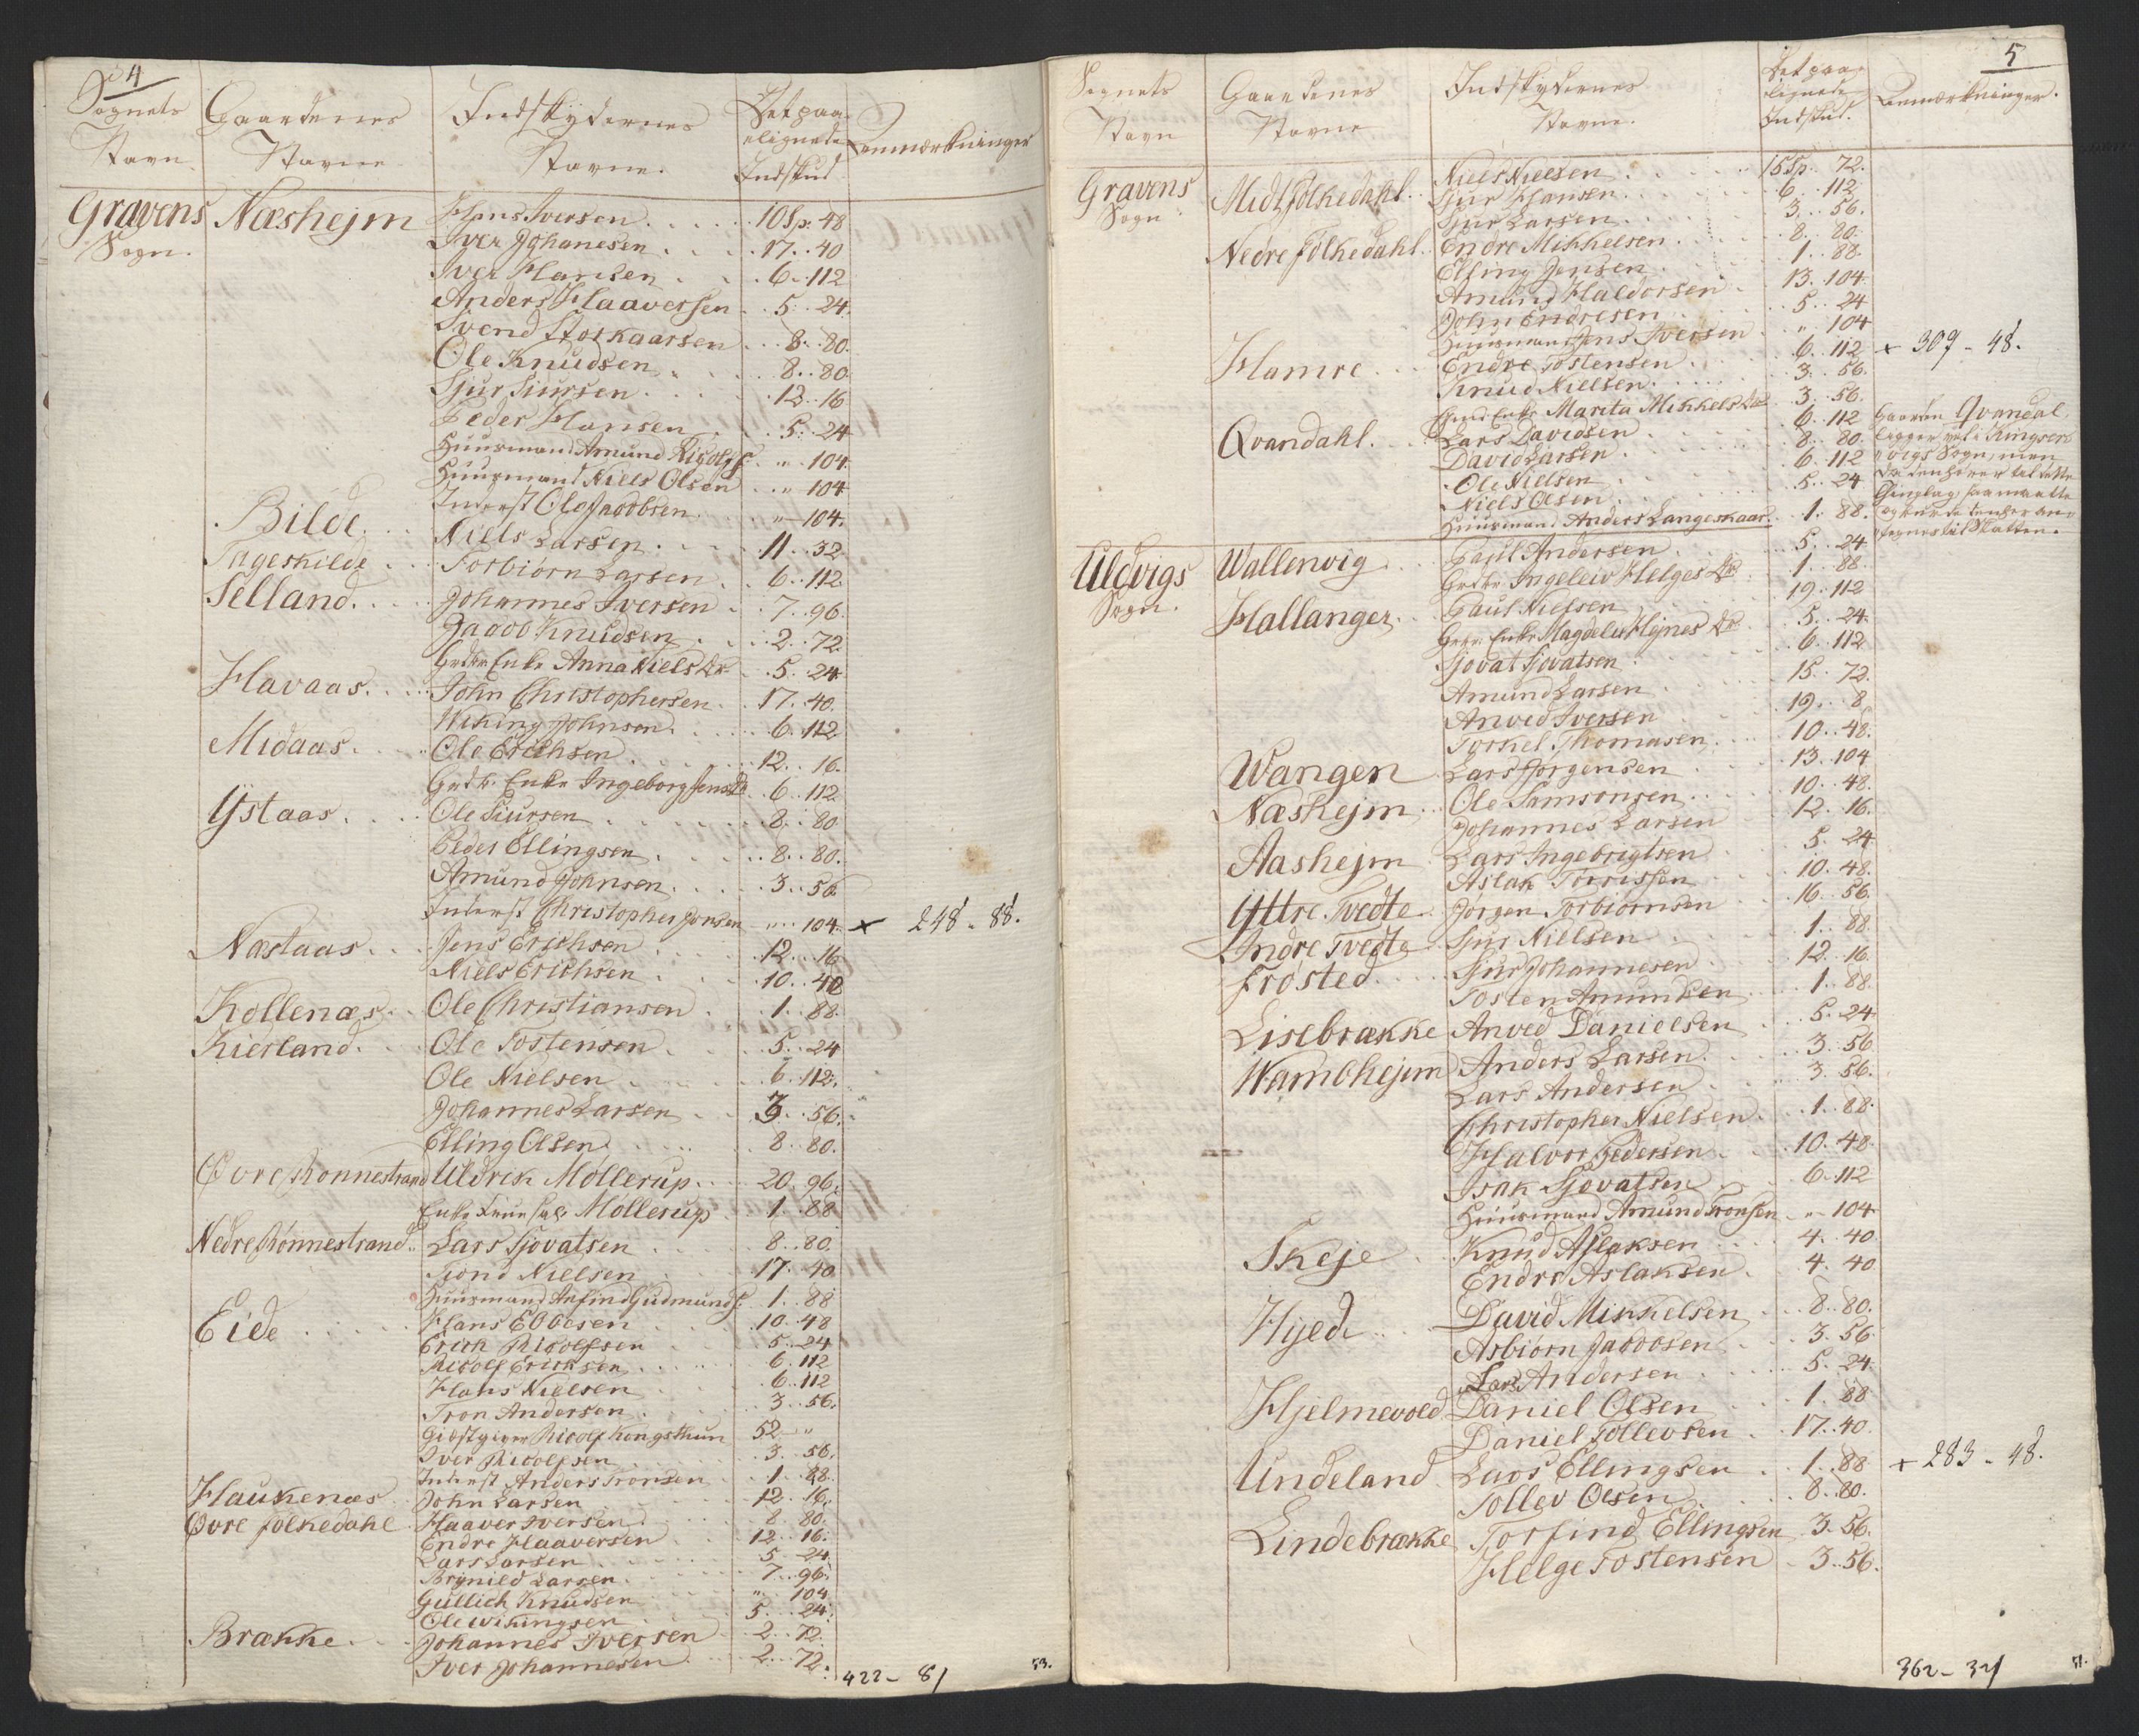 4
Sognets Navn
Gaardenes Navne
Indskydernes Navne.
Det paalignede Indskud
Anmærkninger
Gravens Sogn.
Næshejm Hans Iversen 10 Sp. 48
Iver Johanesen 17. 40
Iver Hansen 6. 112
Anders Haaversen 5. 24.
Svend Storkaarsen 8. 80.
Ole Knudsen 8. 80
Sjur Siursen 12. 16
Peder Hansen 5. 24
Huusmand Amund Ricolfs. " 104.
Huusmand Niels Olsen " 104
Inderst Ole Jacobsen " 104.
Bilde Niels Larsen 11. 32
Tageskilde Torbiørn Larsen 6. 112
Selland Johannes Iversen 7. 96.
Jacob Knudsen 2. 72
Enke Anna Niels Dr. 5. 24
Havaas John Christophersen 17. 40.
Wiking Johnsen 6. 112
Midaas Ole Erichsen 12. 16.
Enke Ingeborg Jens Dr. 6. 112
Ystaas Ole Siursen 8. 80
Peder Ellingsen 8. 80.
Amund Johnsen 3. 56
Inderst Christopher Jonsen " 104. × 248 - 88.
Næstaas Jens Erichsen 12. 16
Niels Erichsen 10. 48
Kollenæs Ole Christiansen 1. 88.
Kierland Ole Tostensen 5. 24
Ole Nielsen 6. 112.
Johannes Larsen 3. 56.
Elling Olsen 8. 80.
Øvre Rønnestrand Uldrik Møllerup 20. 96.
Enke Møllerup 1. 88
Nedre Rønnestrand Lars Sjovatsen 8. 80.
Trond Nielsen 17. 40
Huusmand Arfind Gudmunds. 1. 88
Eide Hans Ebbesen 10. 48
Erich Ricolfsen 5. 24
Ricolf Ericksen 6. 112
Hans Nielsen 6. 112
Tron Andersen 3. 56.
Giestgiver Ricolf Kongsthun 52 "
Iver Ricolfsen 3. 56.
Inderst Anders Tronsen 1. 88.
Haukenæs John Larsen 12. 16.
Øvre Folkedahl Haaver Iversen 8. 80.
Endre Haaversen 12. 16.
Lars Larsen 5. 24
Brynild Larsen 7. 96.
Gullich Knudsen " 104
Ole Wikingsen 5. 24.
Brække Johannes Iversen 2. 72.
Iver Johannesen 2. 72.
422 - 8/
53.
5
Sognets Navn
Gaardenes Navne
Indskydernes Navne.
Det paalignede Indskud.
Anmærkninger.
Gravens Sogn
Midt Folkedahl Niels Nielsen 15 Sp. 72.
Sjur Hansen 6. 112
Sjur Larsen 3. 56.
Nedre Folkedahl Endre Mikkelsen 8. 80.
Elling Jensen 1. 88.
Amund Haldorsen 13. 104
John Endresen 5. 24
Huusmand Jens Iversen " 104
Hamre Endre Tostensen 6. 112 × 309 - 48.
Knud Nielsen 3. 56.
Enke Marita Mikkels Dr. 3. 56.
Qvandahl Lars Davidsen 6. 112
David Larsen 8. 80.
Ole Nielsen 6. 112
Niels Olsen 5. 24
Huusmand Anders Langeskaar 1. 88.
Gaarden Qvandal
ligger vel i Kingser-
vigs Sogn, men
da den hører til dette
Tinglag, saa maatte
den her an-
tegnes til Skatten.
Uldvigs Sogn.
Wallenvig Paul Andersen 5. 24
Ingeleiv Helges Dr. 1. 88.
Hallanger Paul Nielsen 19. 112
Enke Magdele Hejnes Dr. 5. 24.
Sjovat Sjovatsen 6. 112
Amund Larsen 15. 72.
Anved Iversen 19. 8
Torkel Thomasen 10. 48.
Wangen Lars Jørgensen 13. 104
Næshejm Ole Samsonsen 10. 48.
Johannes Larsen 12. 16.
Aashejm Lars Ingebrigtsen 5. 24
Aslak Torrissen 10. 48.
Yttre Tvedte Jørgen Torbiørnsen 16. 56.
Indre Tvedte Sjur Nielsen 1. 88.
Frøsted Sjur Johannesen 12. 16.
Tosten Amundsen 1. 88.
Lisebrække Anved Danielsen 5. 24
Wambhejm Anders Larsen 3. 56
Lars Andersen 3. 56.
Christopher Nielsen 1. 88.
Halvor Pedersen 10. 48.
Isak Sjovatsen 6. 112
Huusmand Amund Tronsen " 104
Skeje Knud Aslaksen 4. 40
Endre Aslaksen 4. 40
Hyed David Mikkelsen 8. 80.
Asbiørn Jacobsen 3. 56.
Lars Andersen 5. 24.
Hjelmevold Daniel Olsen 1. 88
Daniel Tollevsen 17. 40.
Undeland Lars Ellingsen 1. 88 × 283 - 48.
Tollev Olsen 8. 80.
Lindebrække Torfind Ellingsen 3. 56.
Helge Tostensen 3. 56.
362 - 32/
51.